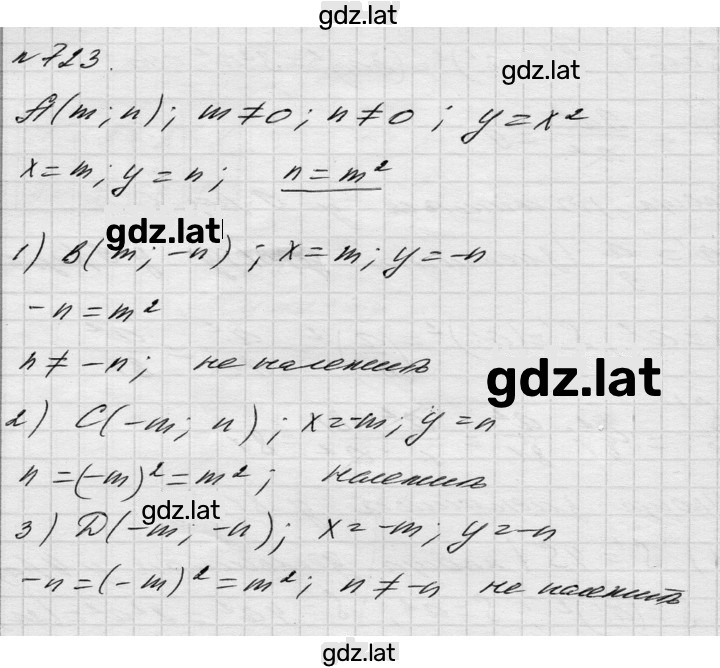 gdz.lat
№ 723.
gdz.lat
A(m; n); m ≠ 0; n ≠ 0; y = x²
x = m; y = n; n = m²
gdz.lat
1) B(m; -n); x = m; y = -n
-n = m²
n ≠ -n; не належить
gdz.lat
2) C(-m; n); x = -m; y = n
n = (-m)² = m²; належить
gdz.lat
3) D(-m; -n); x = -m; y = -n
-n = (-m)² = m²; n ≠ -n не належить
gdz.lat